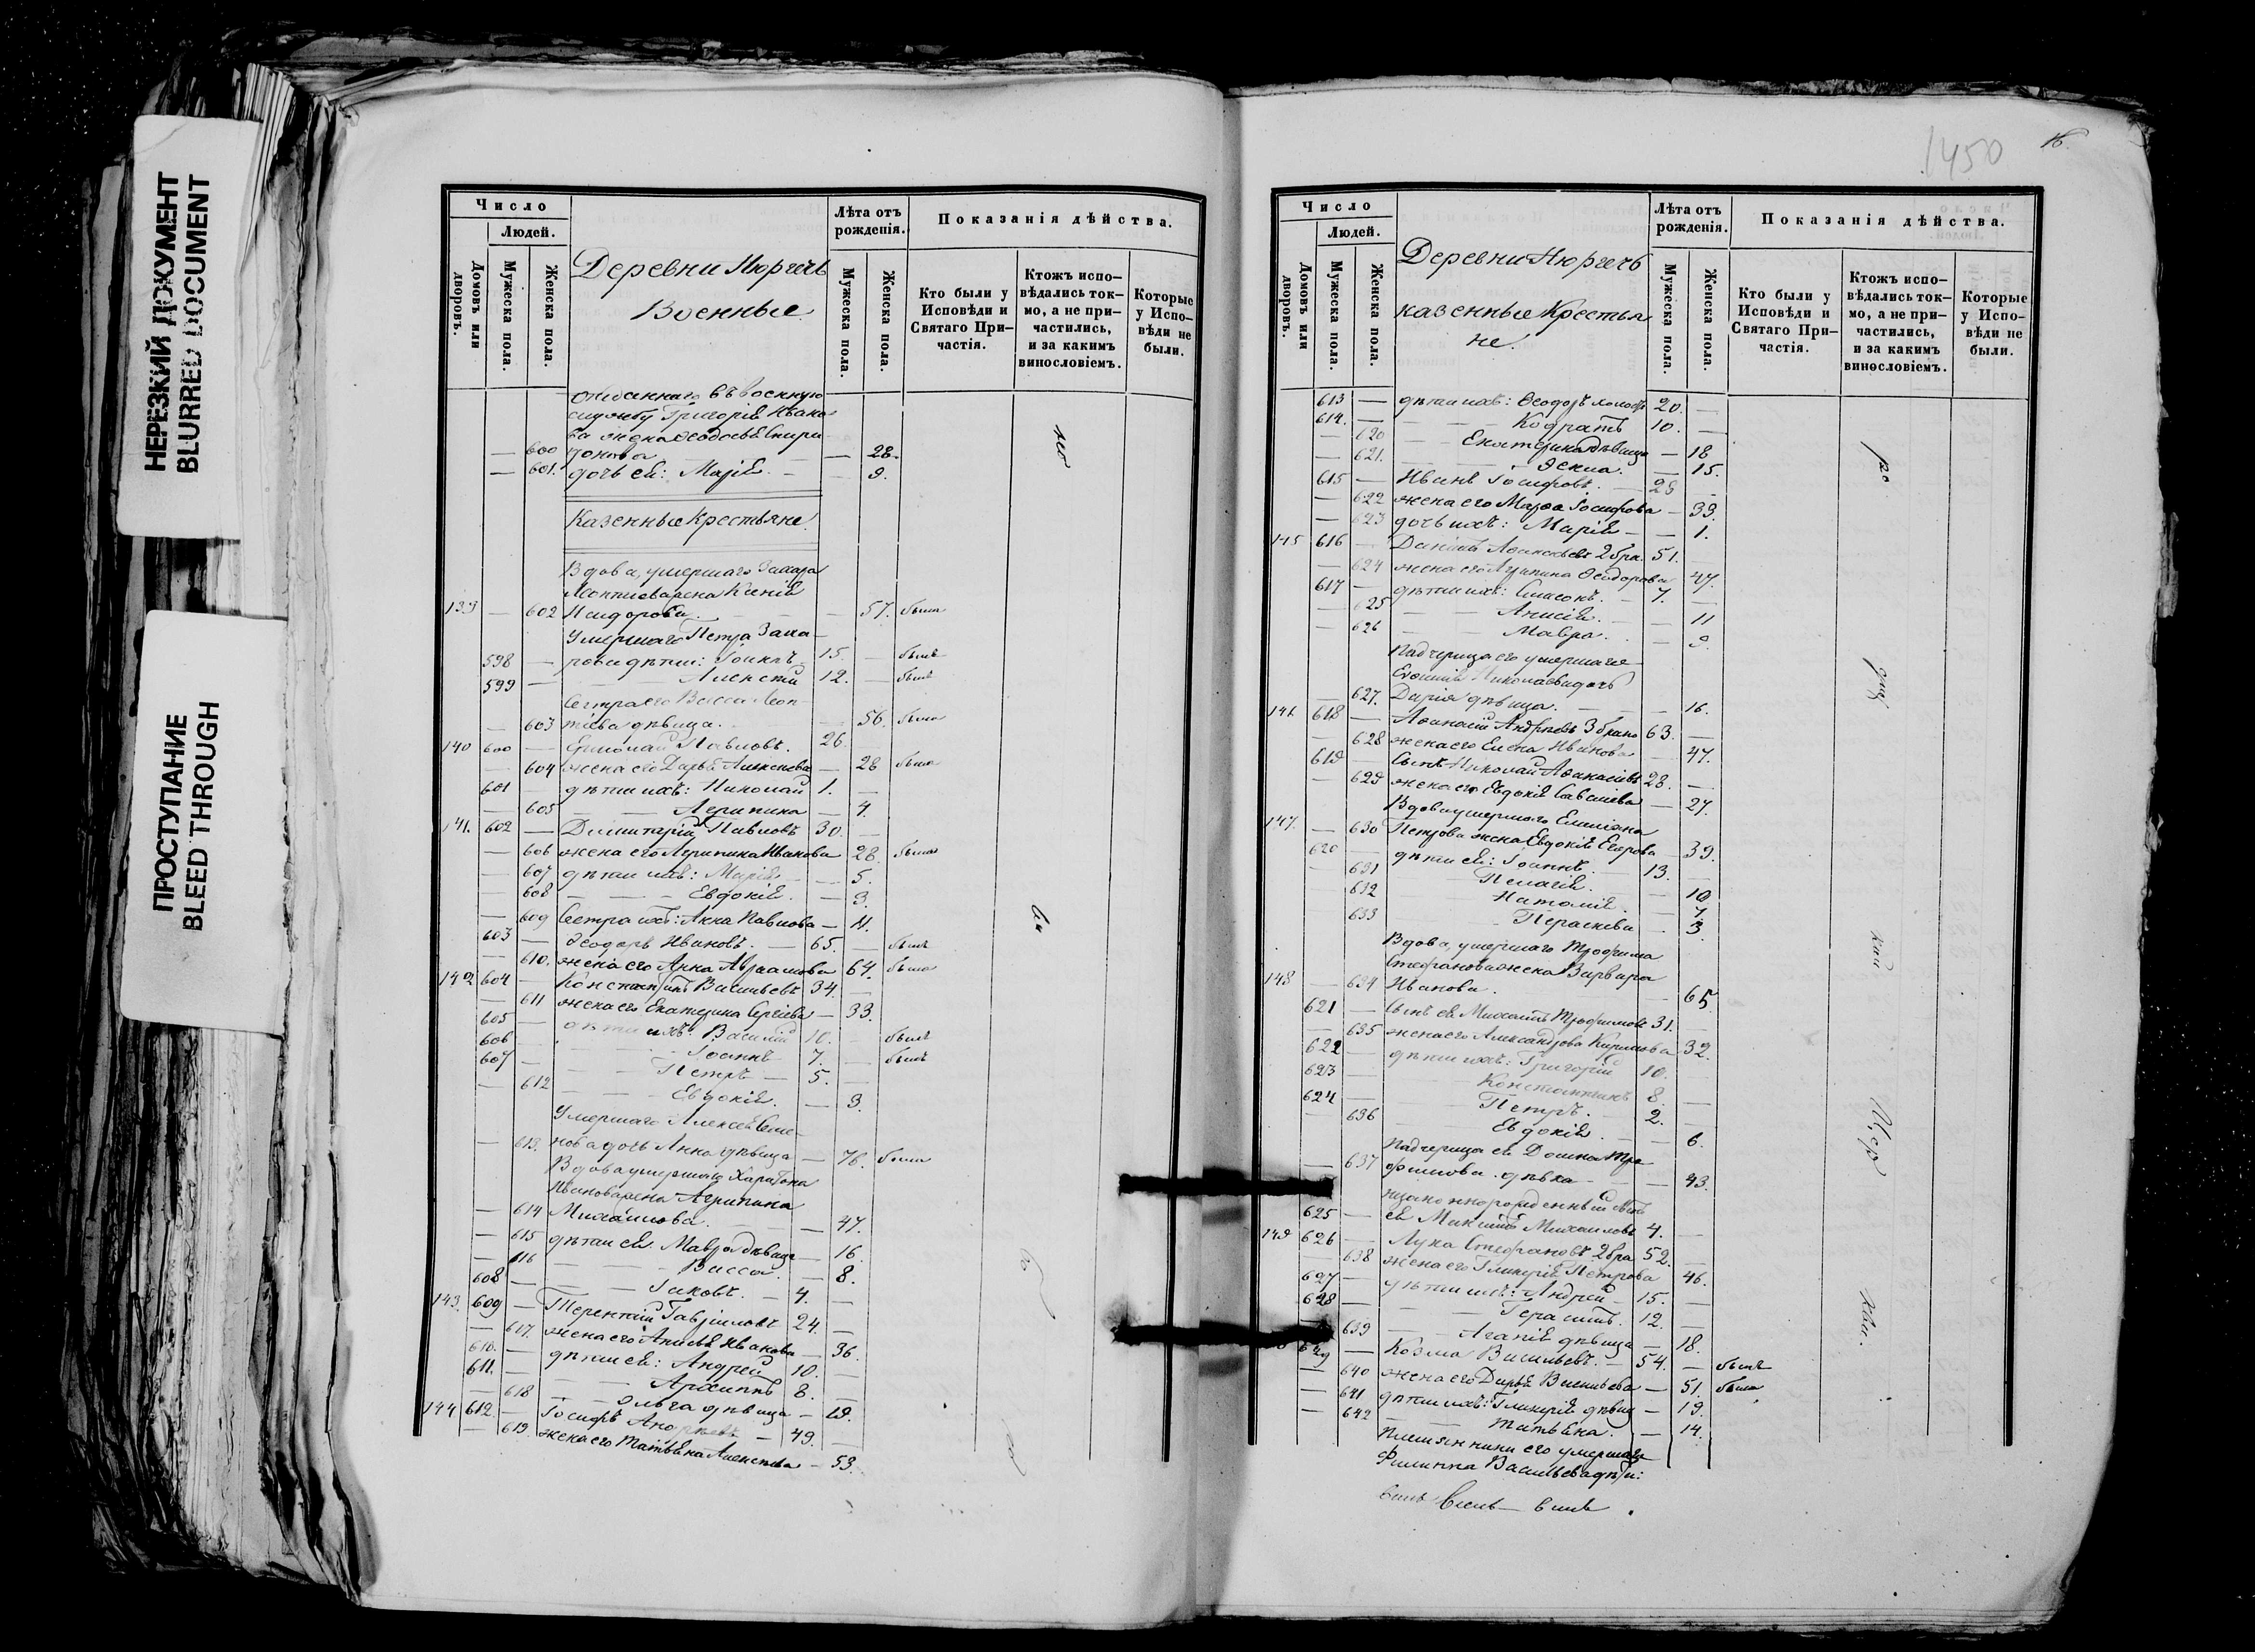 НЕРЕЗКИЙ ДОКУМЕНТ
BLURRED DOCUMENT
ПРОСТУПАНИЕ
BLEED THROUGH
Число
Людей.
Домовъ или дворовъ.
Мужеска пола.
Женска пола.
Деревни Нюргечь
Военные
Лѣта отъ рожденія.
Мужеска пола.
Женска пола.
Показанія дѣйства.
Кто были у Исповѣди и Святаго Причастія.
Ктожъ исповѣдались токмо, а не причастились, и за какимъ винословіемъ.
Которые у Исповѣди не были.
въ военную
службу Григорія Ивано-
ва жена Феодосья Спири-
— 600 донова — 28.
— 601. дочь ея: Марія — 9.
Казенные Крестьяне
Вдова, умершаго Захара
Ксенія
139 — 602 Исидорова — 57. была
Умершаго Петра Заха-
598 — рова дѣти: 15. — былъ
599 — Алексѣй 12. — былъ
Сестра его Васса Леон-
— 603 тіева дѣвица. — 56. была
140 600 — Ермолай Павловъ. 26.
— 604 жена его Дарья Алексѣева — 28 была
601 — дѣти ихъ: Николай 1. —
— 605 Агрипина — 4.
141. 602 — Димитрій Павловъ 30. —
— 606 жена его Агрипина Иванова 28. была
— 607 дѣти ихъ: Марія — 5.
— 608 Евдокія. — 3.
— 609 Сестра ихъ: Анна Павлова — 11.
603 — Феодоръ Ивановъ. — 65. — былъ
— 610. жена его Анна Авраамова 64. была
142 604 — Константинъ Васильевъ 34. —
— 611 жена его Екатерина Сергѣева — 33.
605 — дѣти ихъ: Василій 10. былъ
606 — Іоаннъ — 7. — былъ
607 — Петръ — 5. —
— 612 Евдокія. — 3.
Умершаго Алексѣя Семе-
— 613. нова дочь Анна дѣвица — 76. была
Вдова умершаго Харитона
Иванова жена Агрипина
— 614 Михайлова. — 47.
— 615 дѣти ея: Мавра дѣвица — 16
— 616 Васса. — 8.
608 — Іаковъ. — 4. —
143. 609 — Терентій Гавриловъ 24. —
— 617. жена его Анисья Иванова — 36.
610. — дѣти ея: Андрей 10. —
611. — Архиппъ 8. —
— 618 Ольга дѣвица — 19.
144 612. — Іосифъ Андреевъ — 49. —
— 619. жена его Татьяна Алексѣева — 53.
1450
16
Число
Людей.
Домовъ или дворовъ.
Мужеска пола.
Женска пола.
Деревни Нюргечь
казенные Крестья
не.
Лѣта отъ рожденія.
Мужеска пола.
Женска пола.
Показанія дѣйства.
Кто были у Исповѣди и Святаго Причастія.
Ктожъ исповѣдались токмо, а не причастились, и за какимъ винословіемъ.
Которые у Исповѣди не были.
613 — дѣти ихъ: Феодоръ холостъ 20. —
614. — Кодратъ 10. —
— 620 Екатерина дѣвица — 18
— 621. Фекла. — 15.
615 — Иванъ Іосифовъ. — 23 —
— 622 жена его Марфа Іосифова — 33.
— 623 дочь ихъ: Марія — 1.
145 616 — Даніилъ 2 бра. 51. —
— 624 жена его Агрипина Феодорова 47.
617 — дѣти ихъ: Симеонъ. — 7. —
— 625 Анисія. — 11
— 626 Мавра. — 9.
Падчерица его умершаго
Николаева дочь
— 627. Дарія дѣвица. — 16.
146 618 — Афанасій Андреевъ 3 брака 63. —
— 628 жена его Елена Иванова — 47.
619 — Сынъ Николай Афанасіевъ 28. —
— 629 жена его Евдокія Савеліева — 27.
Вдова умершаго Емиліана
147. — 630 Петрова жена Евдокія Егорова 39.
620 — дѣти ея: Іоаннъ. — 13. —
— 631 Пелагія. — 10
632 Наталія. — 7.
633 Параскева — 3.
Вдова, умершаго Трофима
Стефанова жена Варвара
148 — 634 Иванова. — 65.
621 — Сынъ ея Михаилъ Трофимовъ 31. —
— 635 жена его Александра Кирилова 32.
622 — дѣти ихъ: Григорій 10. —
623 — Константинъ 8. —
624 — Петръ. — 2. —
— 636 Евдокія. — 6.
Падчерица ея Домна Тро-
— 637 фимова дѣвка — 43.
незаконнорожденный сынъ
625 — ея Максимъ Михаиловъ 4. —
149 626 — Лука Стефановъ 2 бра. 52. —
— 638 жена его Гликерія Петрова 46.
627 — дѣти ихъ: Андрей — 15. —
628 — Герасимъ. 12. —
639 Агапія дѣвица — 18.
629 — Козма Васильевъ. — 54. — былъ
— 640 жена его Дарья Васильева — 51. была
— 641 дѣти ихъ: Гликерія дѣвиц — 19.
— 642 Татьяна. — 14.
Племянники его умершаго
Филиппа Васильева дѣти: